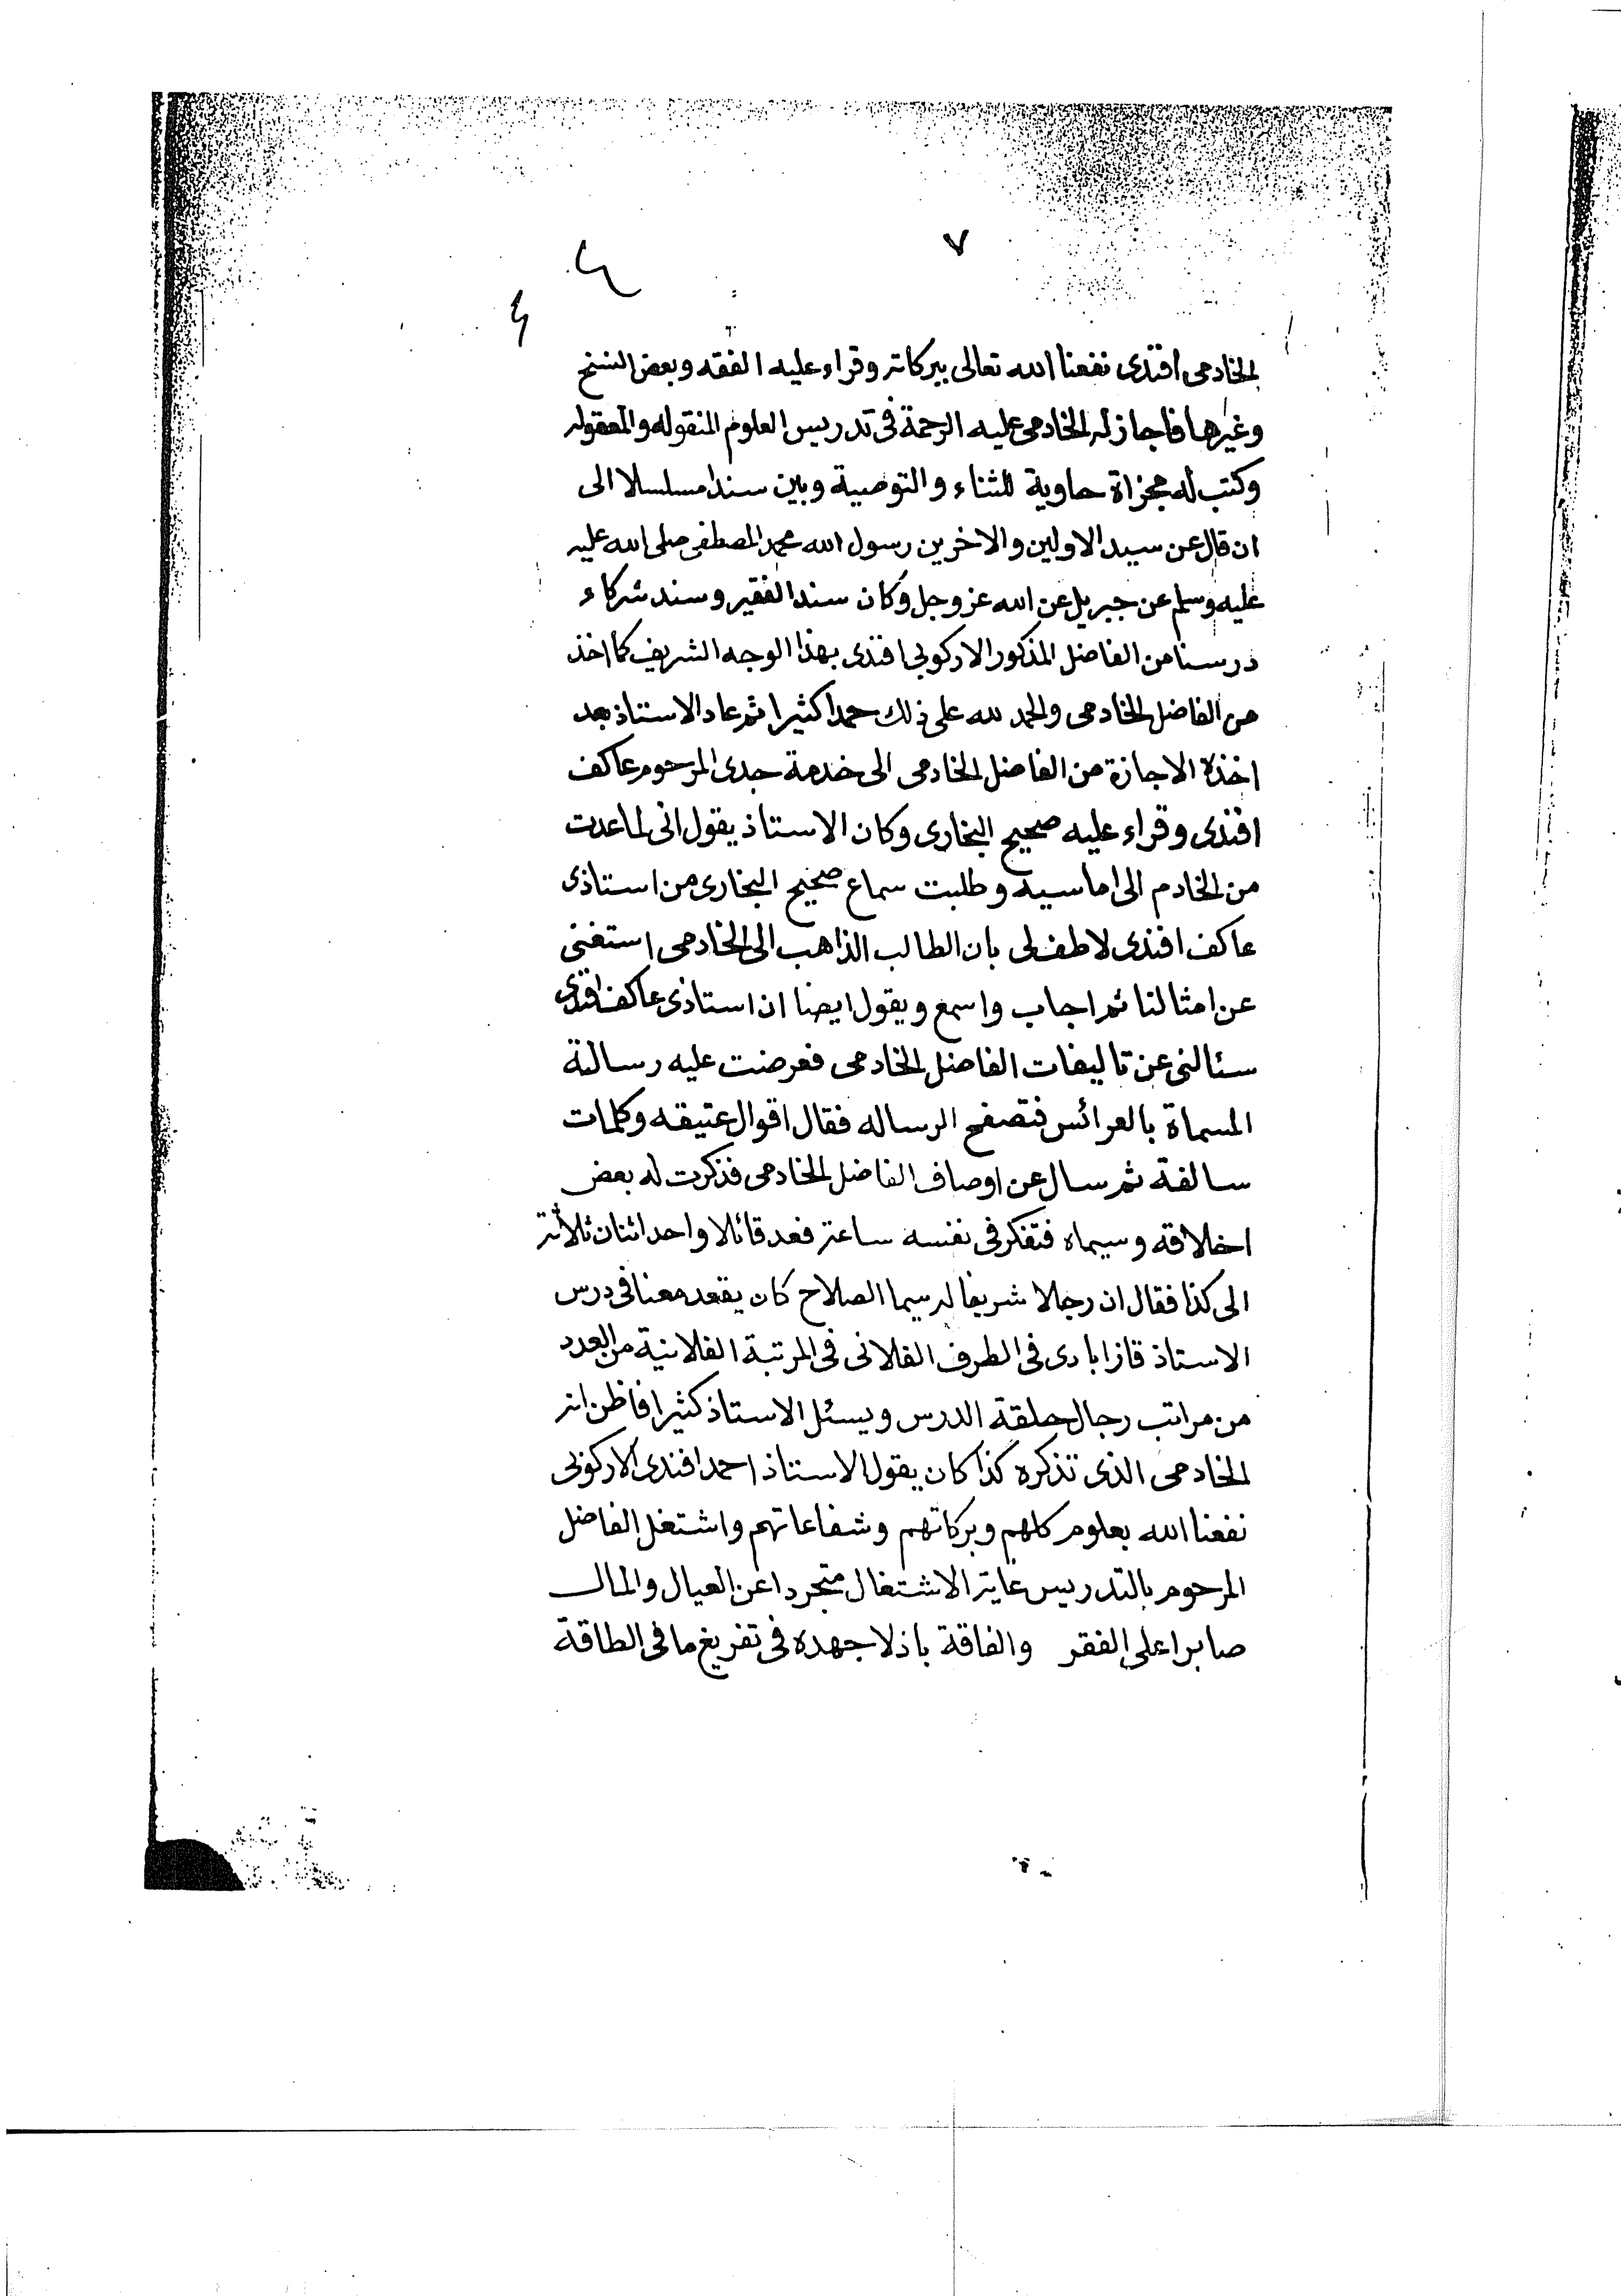 ٧
٤
٤
الخادمى افندى نفعنا الله تعالى ببركاته وقراء عليه الفقه وبعض النسخ
وغيرها فاجاز له الخادمى عليه الرحمة فى تدريس العلوم المنقوله والمعقوله
وكتب له مجزاة حاوية للثناء والتوصية وبين سندا مسلسلا الى
ان قال عن سيد الاولين والاخرين رسول الله محمد المصطفى صلى الله عليه
عليه وسلم عن جبريل عن الله عز وجل وكان سند الفقير وسند شركاء
درسنا من الفاضل المذكور الاركوبى افندى بهذا الوجه الشريف كما اخذ
من الفاضل الخادمى والحمد لله على ذلك حمدا كثيرا ثم عاد الاستاذ بعد
اخذه الاجازة من الفاضل الخادمى الى خدمة جدى المرحوم عاكف
افندى وقراء عليه صحيح البخارى وكان الاستاذ يقول انى لما عدت
من الخادم الى اماسيه وطلبت سماع صحيح البخارى من استاذى
عاكف افندى لاطف لى بان الطالب الذاهب الى الخادمى استغنى
عن امثالنا ثم اجاب واسمع ويقول ايضا ان استاذى عاكف افندى
سئالنى عن تاليفات الفاضل الخادمى فعرضت عليه رسالة
المسماة بالعرائس فتصفح الرساله فقال اقوال عتيقه وكلمات
سالفة ثم سال عن اوصاف الفاضل الخادمى فذكرت له بعض
اخلاقه وسيماه فتفكر فى نفسه ساعة فعد قائلا واحد اثنان ثلاثة
الى كذا فقال ان رجلا شريفا له سيما الصلاح كان يقعد معنا فى درس
الاستاذ قازابادى فى الطرف الفلانى فى المرتبة الفلانية من العدد
من مراتب رجال حلقة الدرس ويسئل الاستاذ كثيرا فاظن انه
الخادمى الذى تذكره كذا كان يقول الاستاذ احمد افندى الاركوبى
نفعنا الله بعلوم كلهم وبركاتهم وشفاعاتهم واشتغل الفاضل
المرحوم بالتدريس غاية الاشتغال متجردا عن العيال والمال
صابرا على الفقر والفاقة باذلا جهده فى تفريغ ما فى الطاقة